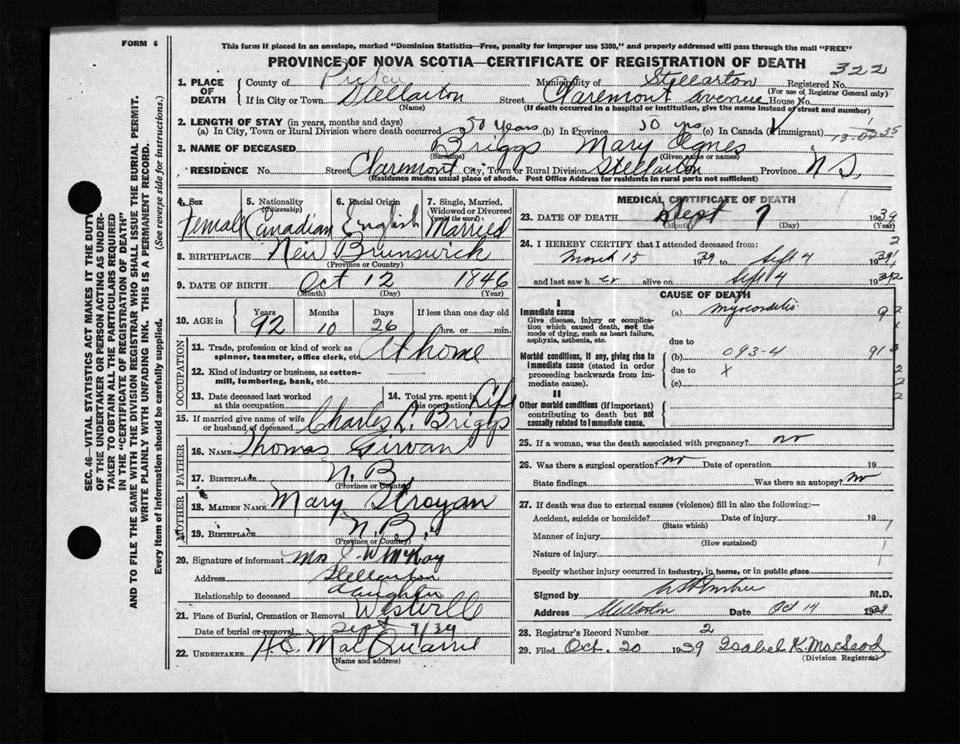 FORM 6
This form if placed in an envelope, marked "Dominion Statistics—Free, penalty for improper use $300," and properly addressed will pass through the mail "FREE"
PROVINCE OF NOVA SCOTIA—CERTIFICATE OF REGISTRATION OF DEATH
322
1. PLACE OF DEATH
County of Pictou Municipality of Stellarton Registered No.
(For use of Registrar General only)
If in City or Town Stellarton Street Claremont Avenue House No.
(Name) (If death occurred in a hospital or institution, give the name instead of street and number)
2. LENGTH OF STAY (in years, months and days)
(a) In City, Town or Rural Division where death occurred 50 years (b) In Province 50 yrs (c) In Canada (if immigrant)
3. NAME OF DECEASED Briggs Mary Agnes
(Surname) (Given name or names)
RESIDENCE No. Street Claremont City, Town or Rural Division Stellarton Province N S,
(Residence means usual place of abode. Post Office Address for residents in rural parts not sufficient)
4. Sex
Female
5. Nationality (Citizenship)
Canadian
6. Racial Origin
English
7. Single, Married, Widowed or Divorced (write the word)
Married
8. BIRTHPLACE New Brunswick
(Province or Country)
9. DATE OF BIRTH Oct 12 1846
(Month) (Day) (Year)
10. AGE in Years Months Days If less than one day old
92 10 26 hrs. or min.
OCCUPATION
11. Trade, profession or kind of work as spinner, teamster, office clerk, etc. At home
12. Kind of industry or business, as cotton-mill, lumbering, bank, etc.
13. Date deceased last worked at this occupation
14. Total yrs. spent in this occupation Life
15. If married give name of wife or husband of deceased Charles L. Briggs
FATHER
16. NAME Thomas Girvan
17. BIRTHPLACE N. B.
(Province or Country)
MOTHER
18. MAIDEN NAME Mary Stroyan
19. BIRTHPLACE N. B.
(Province or Country)
20. Signature of informant Mrs J. W McKay
Address Stellarton
Relationship to deceased daughter
21. Place of Burial, Cremation or Removal Westville
Date of burial or removal Sept 9/39
22. UNDERTAKER H.C. MacQuarrie
(Name and address)
MEDICAL CERTIFICATE OF DEATH
23. DATE OF DEATH Sept 7 1939
(Month) (Day) (Year)
24. I HEREBY CERTIFY that I attended deceased from:
March 15 1939 to Sept 4 1939
and last saw her alive on Sept 4 1939
CAUSE OF DEATH
I
Immediate cause
Give disease, injury or complication which caused death, not the mode of dying, such as heart failure, asphyxia, asthenia, etc.
(a) Myocarditis
due to
Morbid conditions, if any, giving rise to immediate cause (stated in order proceeding backwards from immediate cause).
(b) 093-4
due to
(c)
II
Other morbid conditions (if important) contributing to death but not causally related to immediate cause.
25. If a woman, was the death associated with pregnancy? no
26. Was there a surgical operation? no Date of operation 19
State findings Was there an autopsy? no
27. If death was due to external causes (violence) fill in also the following:—
Accident, suicide or homicide? Date of injury 19
(State which)
Manner of injury
(How sustained)
Nature of injury
Specify whether injury occurred in industry, in home, or in public place
Signed by M.D.
Address Stellarton Date Oct 14 1939
28. Registrar's Record Number 2
29. Filed Oct. 20 1939 Isabel K. MacLeod
(Division Registrar)
SEC. 46—VITAL STATISTICS ACT MAKES IT THE DUTY OF THE UNDERTAKER OR PERSON ACTING AS UNDERTAKER TO OBTAIN ALL THE PARTICULARS REQUIRED IN THE "CERTIFICATE OF REGISTRATION OF DEATH" AND TO FILE THE SAME WITH THE DIVISION REGISTRAR WHO SHALL ISSUE THE BURIAL PERMIT.
WRITE PLAINLY WITH UNFADING INK. THIS IS A PERMANENT RECORD.
Every item of information should be carefully supplied. (See reverse side for instructions.)